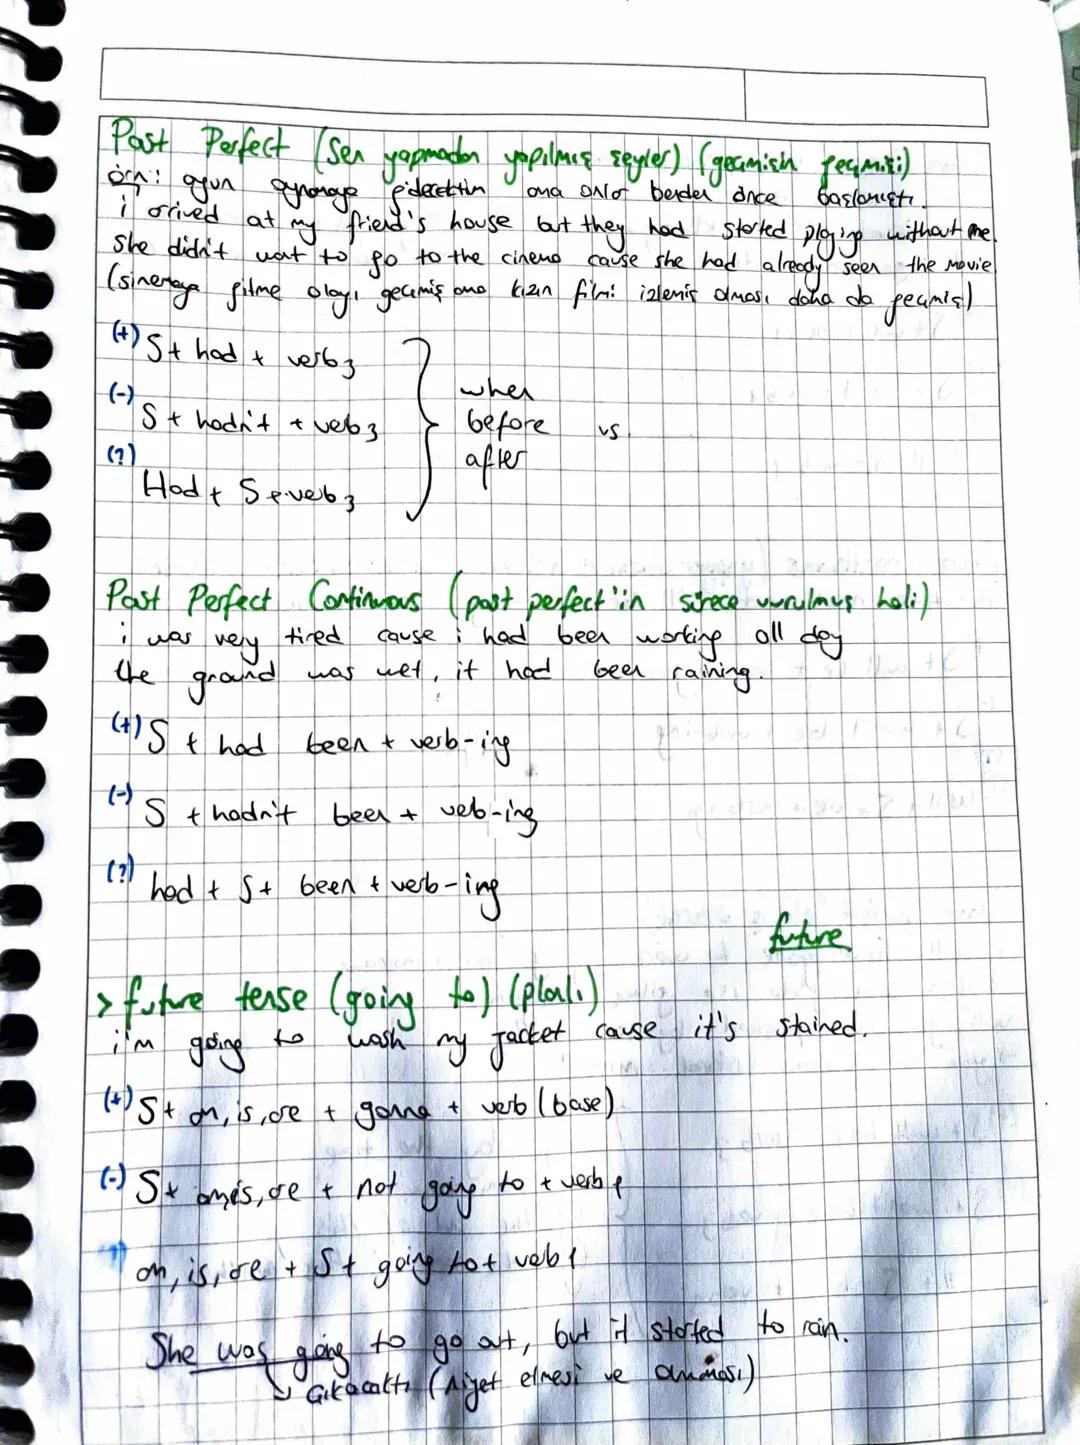 Past Perfect (Sen yapmadan yapılmış şeyler) (geçmişin geçmişi)
örn: oyun oynamaya gidecektin ama onlar benden önce başlamıştı.
i arived at my friend's house but they had started playing without me.
she didn't want to go to the cinema cause she had already seen the movie
(sinemaya gitme olayı geçmiş ama kızın filmi izlemiş olması daha da geçmiş)
(+) S + had + verb3
(-) S + hadn't + verb3
(?) Had + S + verb3
when
before vs.
after
Past Perfect Continuous (past perfect'in sürece vurulmuş hali)
i was very tired cause i had been working all day
the ground was wet, it had been raining.
(+) S + had been + verb-ing
(-) S + hadn't been + verb-ing
(?) had + S + been + verb-ing
future
> future tense (going to) (planlı)
i'm going to wash my jacket cause it's stained.
(+) S + am, is, are + gonna + verb (base)
(-) S + am, is, are + not going to + verb1
(?) am, is, are + S + going to + verb1
She was going to go out, but it started to rain.
↳ Çıkacaktı (niyet etmesi ve olmaması)